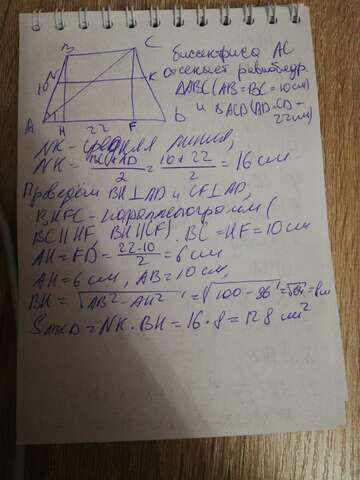 B C
биссектриса AC
отсекает равнобедр.
10 N K
ΔABC (AB=BC=10см)
A H 22 F D
и ΔACD (AD=CD=
22см)
NK - средняя линия,
NK = BC+AD/2 = 10+22/2 = 16 см
Проведём BH⊥AD и CF⊥AD,
BHFC - параллелограмм (
BC||HF, BH||CF). BC=HF=10см
AH=FD= 22-10/2 = 6см
AH=6см, AB=10см,
BH = √AB²-AH² = √100-36 = √64 = 8см
SABCD = NK·BH = 16·8 = 128 см²